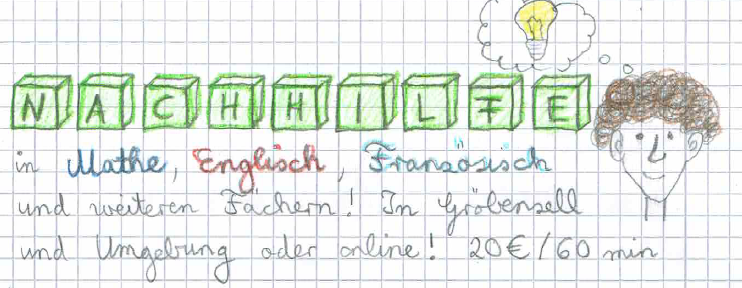 NACHHILFE
in Mathe, Englisch, Französisch
und weiteren Fächern! In Gröbenzell
und Umgebung oder online! 20€/60 min